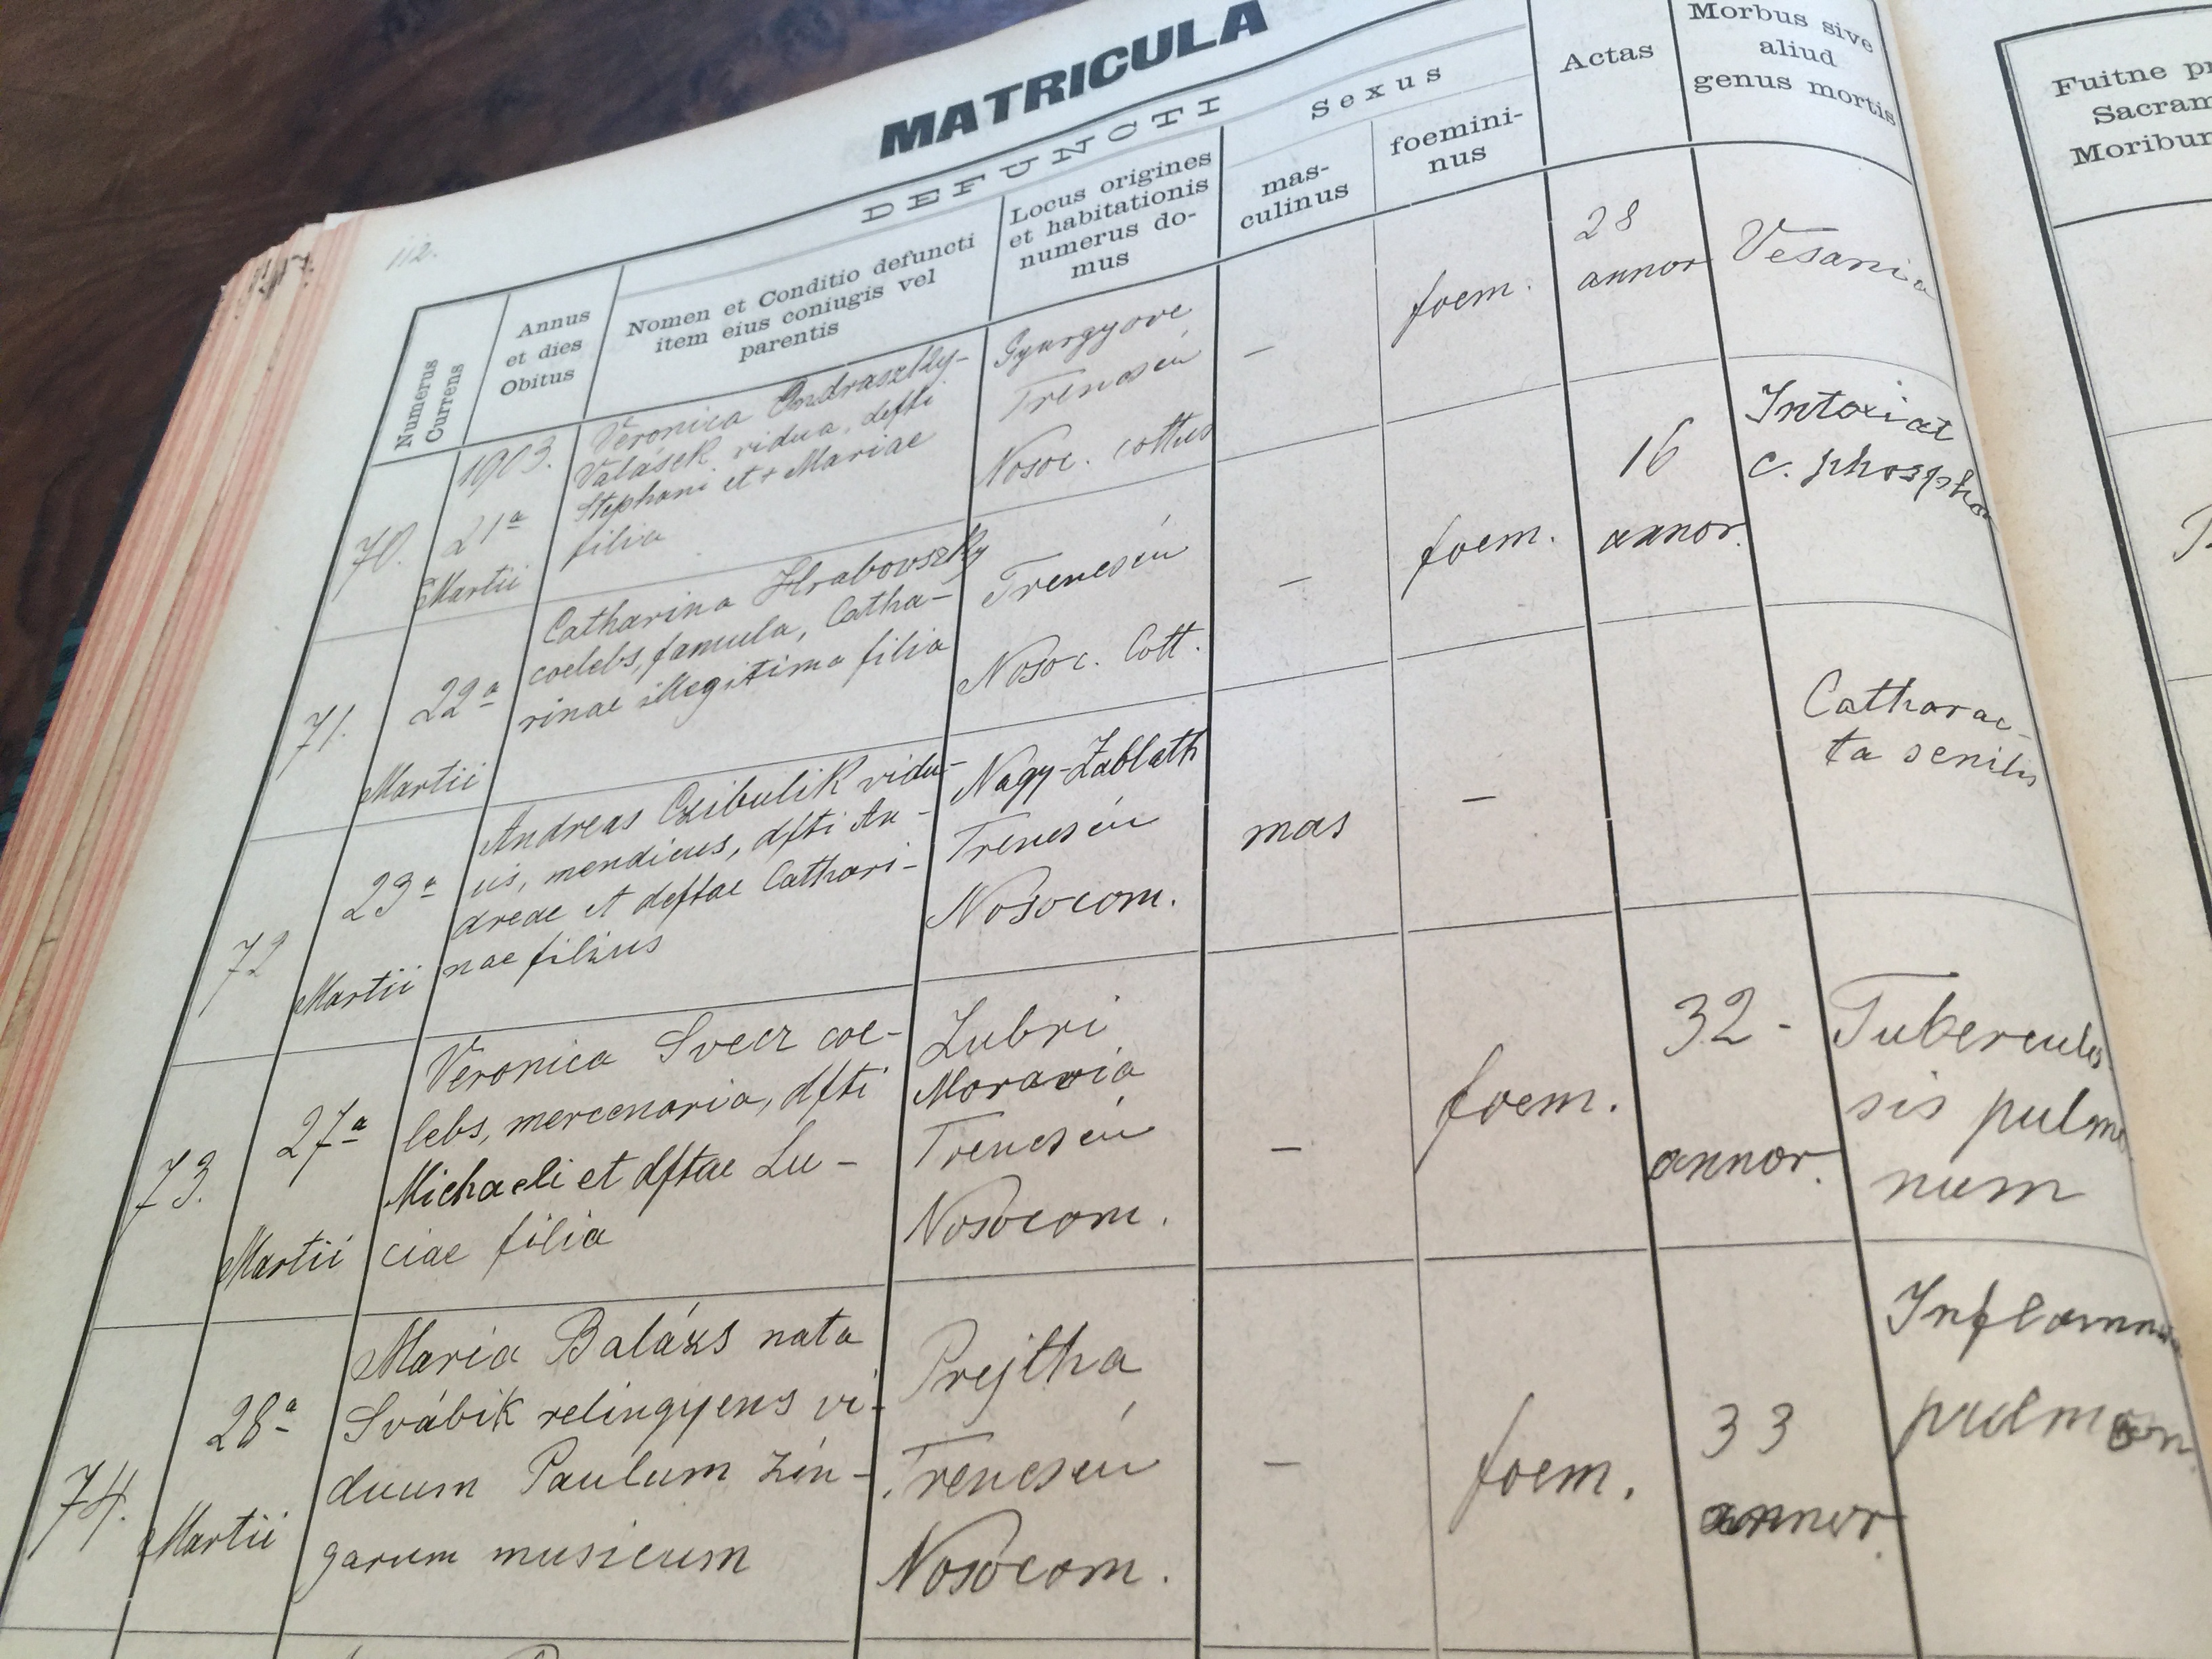 112.
MATRICULA
DEFUNCTI
Numerus
Currens
Annus
et dies
Obitus
Nomen et Conditio defuncti
item eius coniugis vel
parentis
Locus origines
et habitationis
numerus do-
mus
Sexus
mas-
culinus
foemini-
nus
Actas
Morbus sive
aliud
genus mortis
Fuitne
Sacram
Moribun
70.
1903.
21a
Martii
Veronica Ondraszky-
Valásek vidua, defti
Stephani et + Mariae
filia
Gyurgyove
Trencsén
Nosoc. cottus
-
foem.
28
annor
Vesania
71.
22a
Martii
Catharina Hrabovszky
coelebs, famula, Catha-
rinae illegitima filia
Trencsén
Nosoc. Cott.
-
foem.
16
annor.
Intoxicat
c. phospho
72
23a
Martii
Andreas Czibulik vidu-
us, mendicus, dfti An-
dreae et deftae Cathari-
nae filius
Nagy-Zablath
Trencsén
Nosocom.
mas
-
Catharac-
ta senilis
73.
27a
Martii
Veronica Svecz coe-
lebs, mercenaria, dfti
Michaeli et dftae Lu-
ciae filia
Lubri
Moravia
Trencsén
Nosocom.
-
foem.
32-
annor.
Tuberculo
sis pulmo
num
74.
28a
Martii
Maria Balázs nata
Svábik relinqyens vi-
duum Paulum zin-
garum musicum
Prejtha
Trencsén
Nosocom.
-
foem.
33
annor.
Inflamma
pulmon